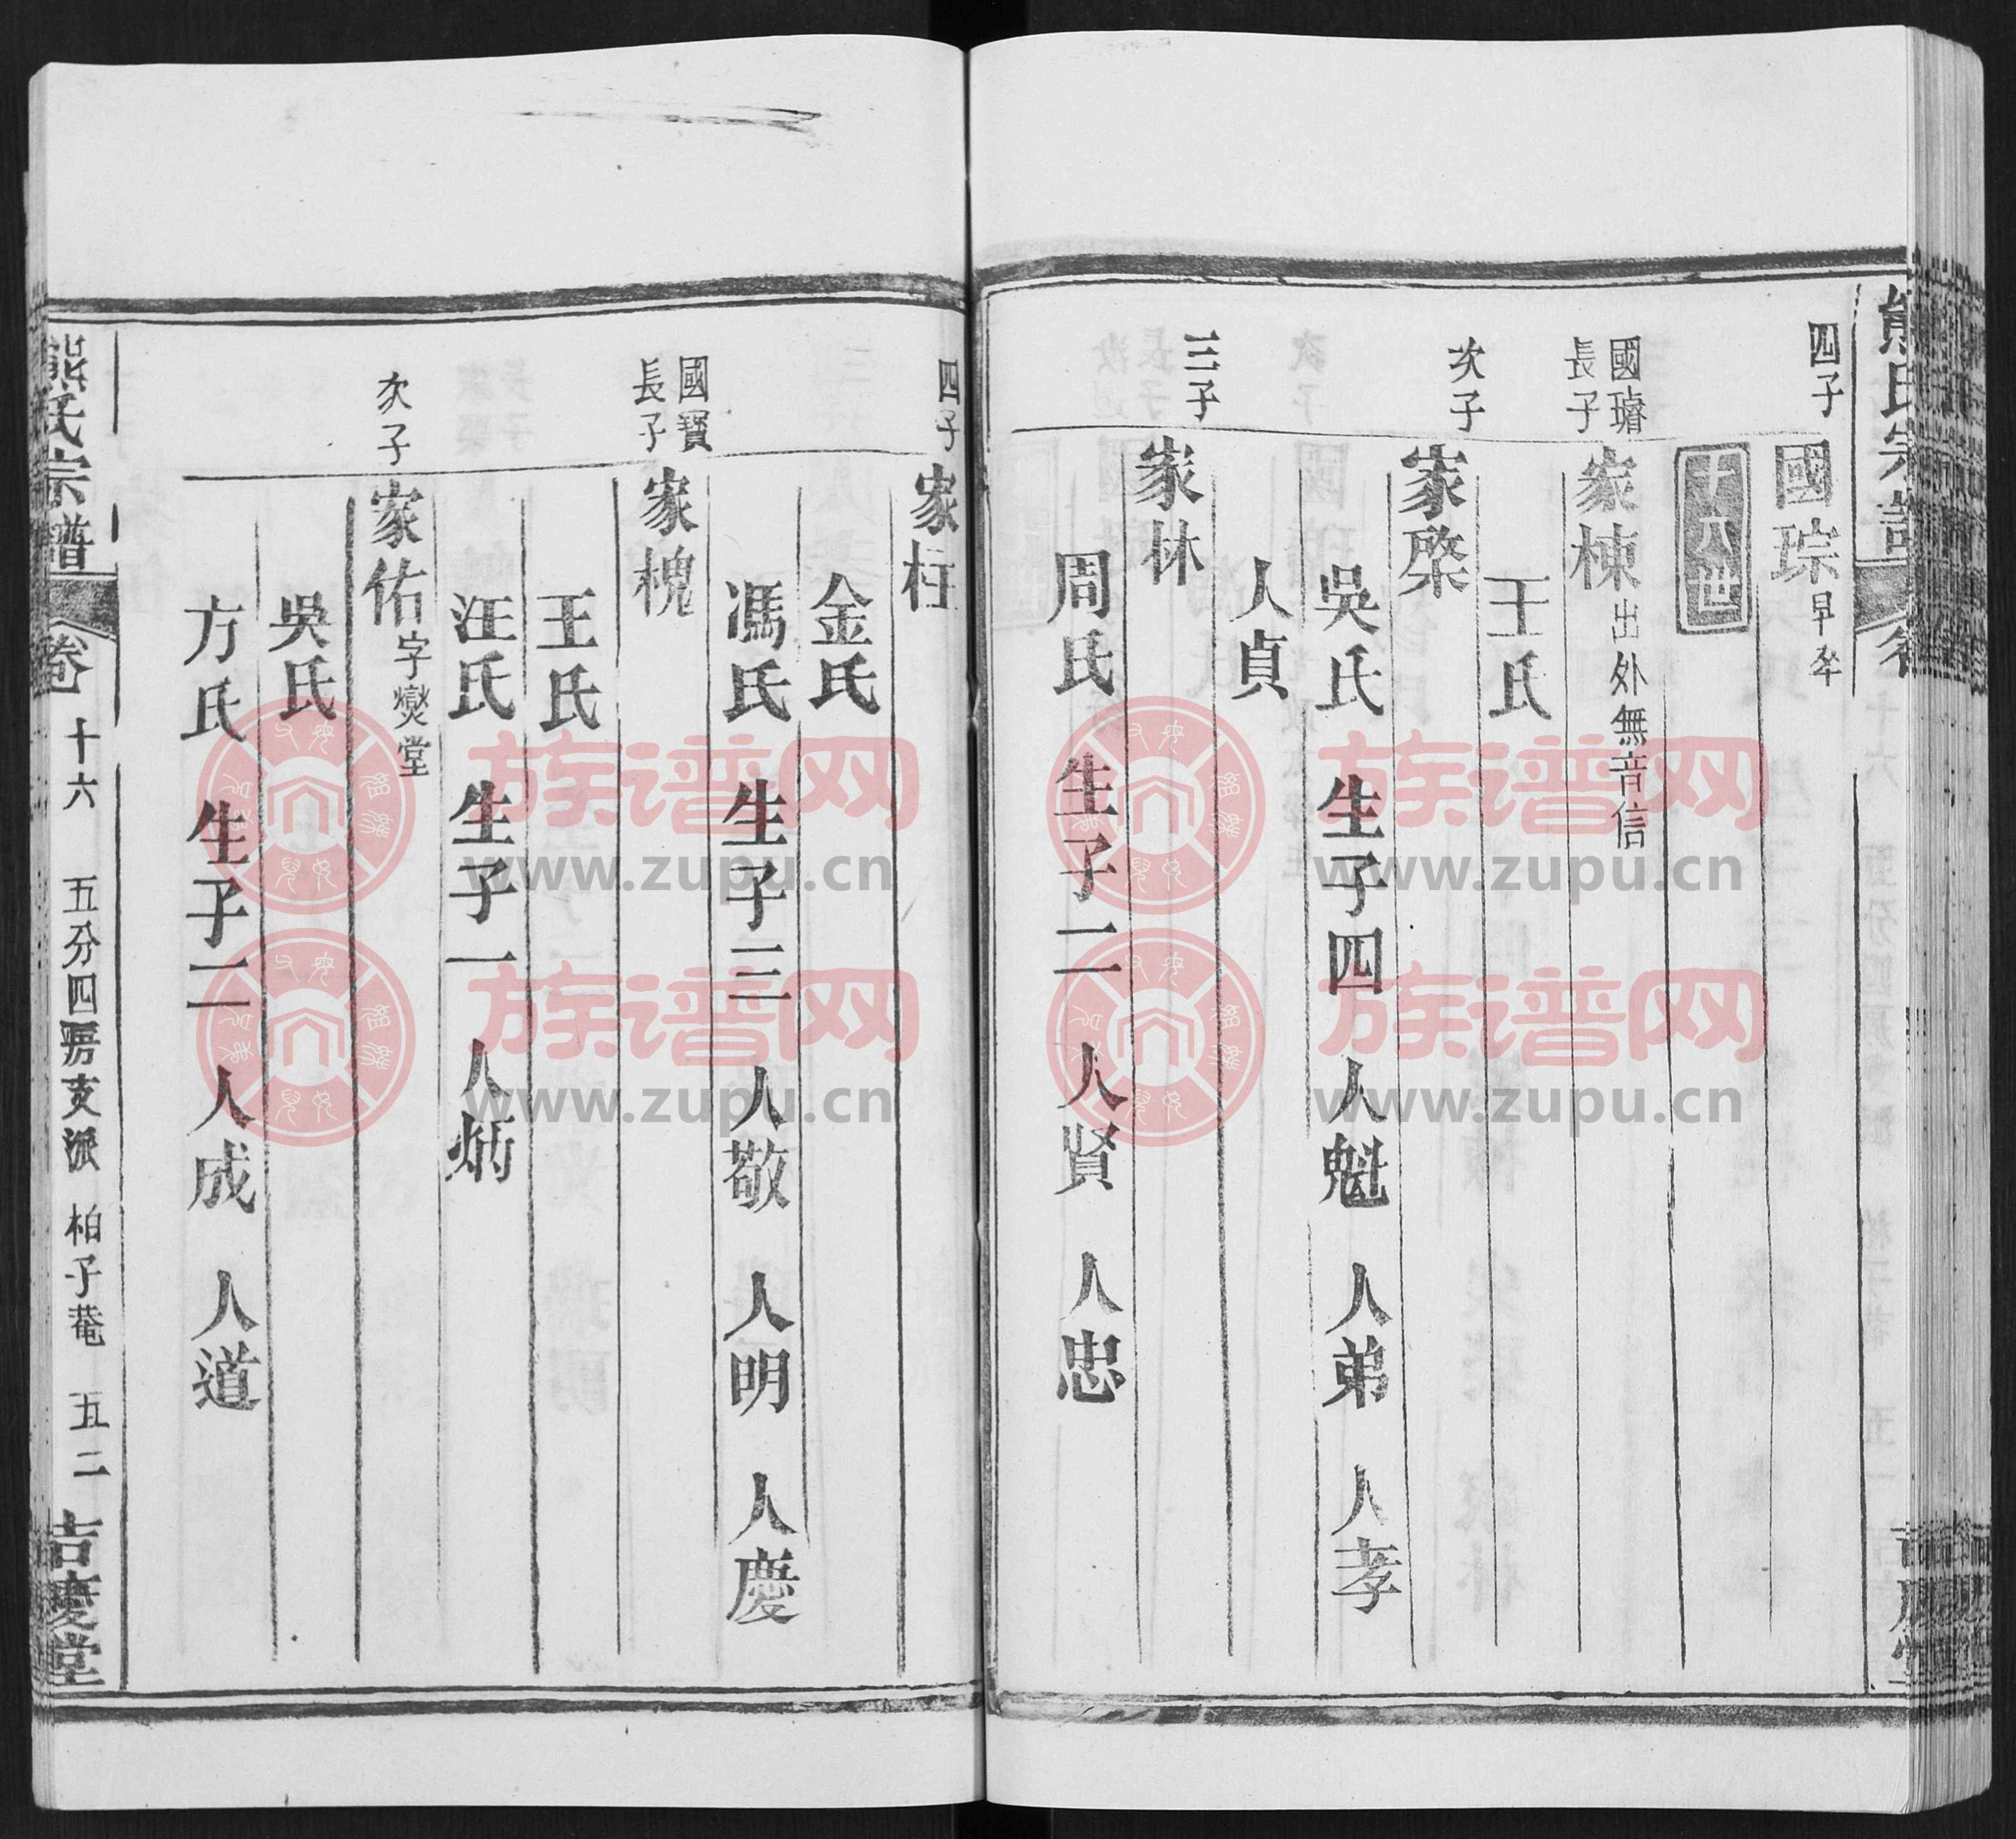 熊氏宗譜
四子
國琮早卒
十八世
國璿
長子
家棟出外無音信
王氏
次子
家棨
吳氏 生子四 人魁 人弟 人孝
人貞
三子
家林
周氏 生子二 人賢 人忠
四子
家柱
金氏
馮氏 生子三 人敬 人明 人慶
國寶
長子
家槐
王氏
汪氏 生子一 人炳
次子
家佑字爕堂
吳氏
方氏 生子二 人成 人道
熊氏宗譜 卷十六 五分四房支派 柏子菴 五二 吉慶堂
族谱网
www.zupu.cn
族谱网
www.zupu.cn
族谱网
www.zupu.cn
族谱网
www.zupu.cn